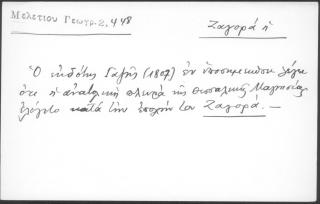 Μελετίου Γεωγρ. 2, 448
Ζαγορά ἡ
Ὁ ἐκδότης Γαζῆς (1807) ἐν ὑποσημειώσει λέγει
ὅτι ἡ ἀνατολικὴ πλευρὰ τῆς Θεσσαλικῆς Μαγνησίας
ἐλέγετο κατὰ τὴν ἐποχήν του Ζαγορά. —